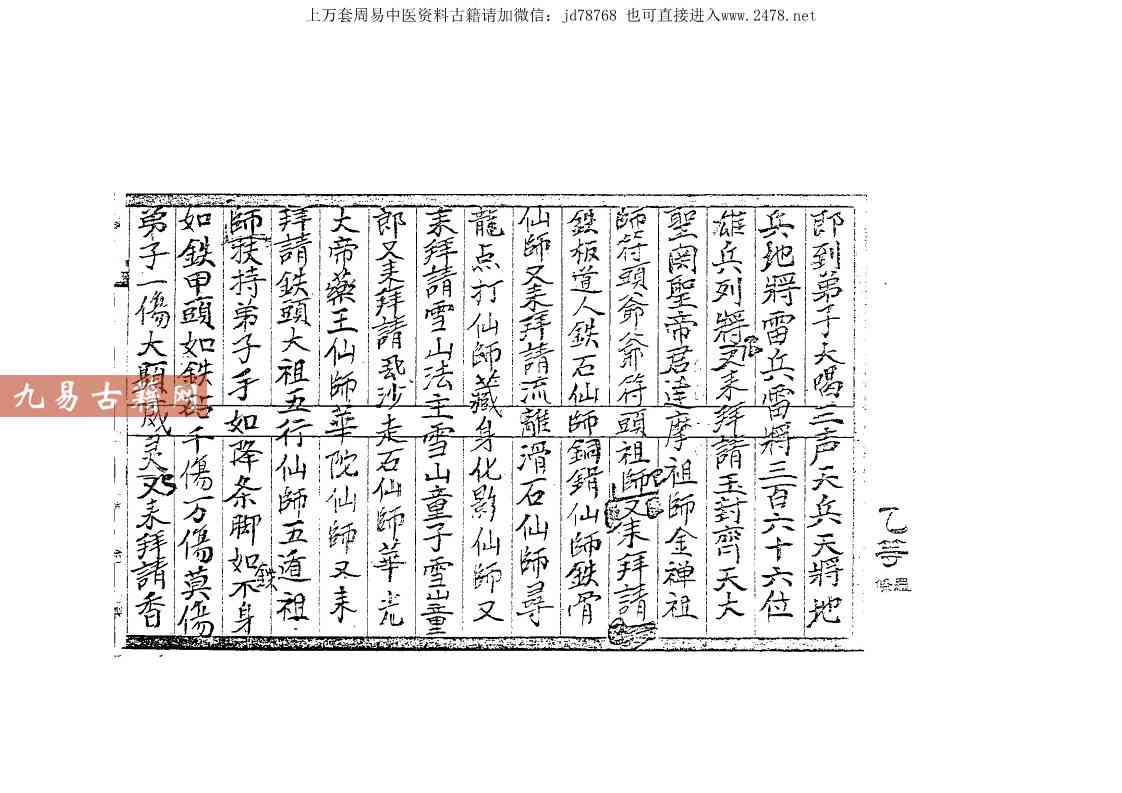 上万套周易中医资料古籍请加微信：jd78768 也可直接进入www.2478.net
郎到弟子大喝三声天兵天將地
兵地將雷兵雷將三百六十六位
雄兵列將又来拜請玉封齊天大
聖関聖帝君達摩祖師金禅祖
師符頭爺爺符頭祖師又来拜請
鉄板道人鉄石仙師銅鎖仙師鉄骨
仙師又来拜請流離滑石仙師尋
龍点打仙師藏身化影仙師又
来拜請雪山法主雪山童子雪山童
郎又来拜請飛沙走石仙師華光
大帝藥王仙師華陀仙師又来
拜請鉄頭大祖五行仙師五遁祖
師扶持弟子手如降条脚如不身
鉄
如鉄甲頭如鉄千傷万傷莫傷
弟子一傷大顯威灵又来拜請香
九易古籍网